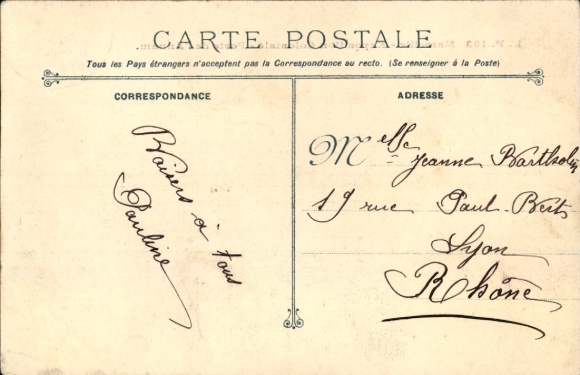 CARTE POSTALE
Tous les Pays étrangers n'acceptent pas la Correspondance au recto. (Se renseigner à la Poste)
CORRESPONDANCE
ADRESSE
Baisers à tous
Pauline
Melle Jeanne
19 rue Paul-Bert
Lyon
Rhône